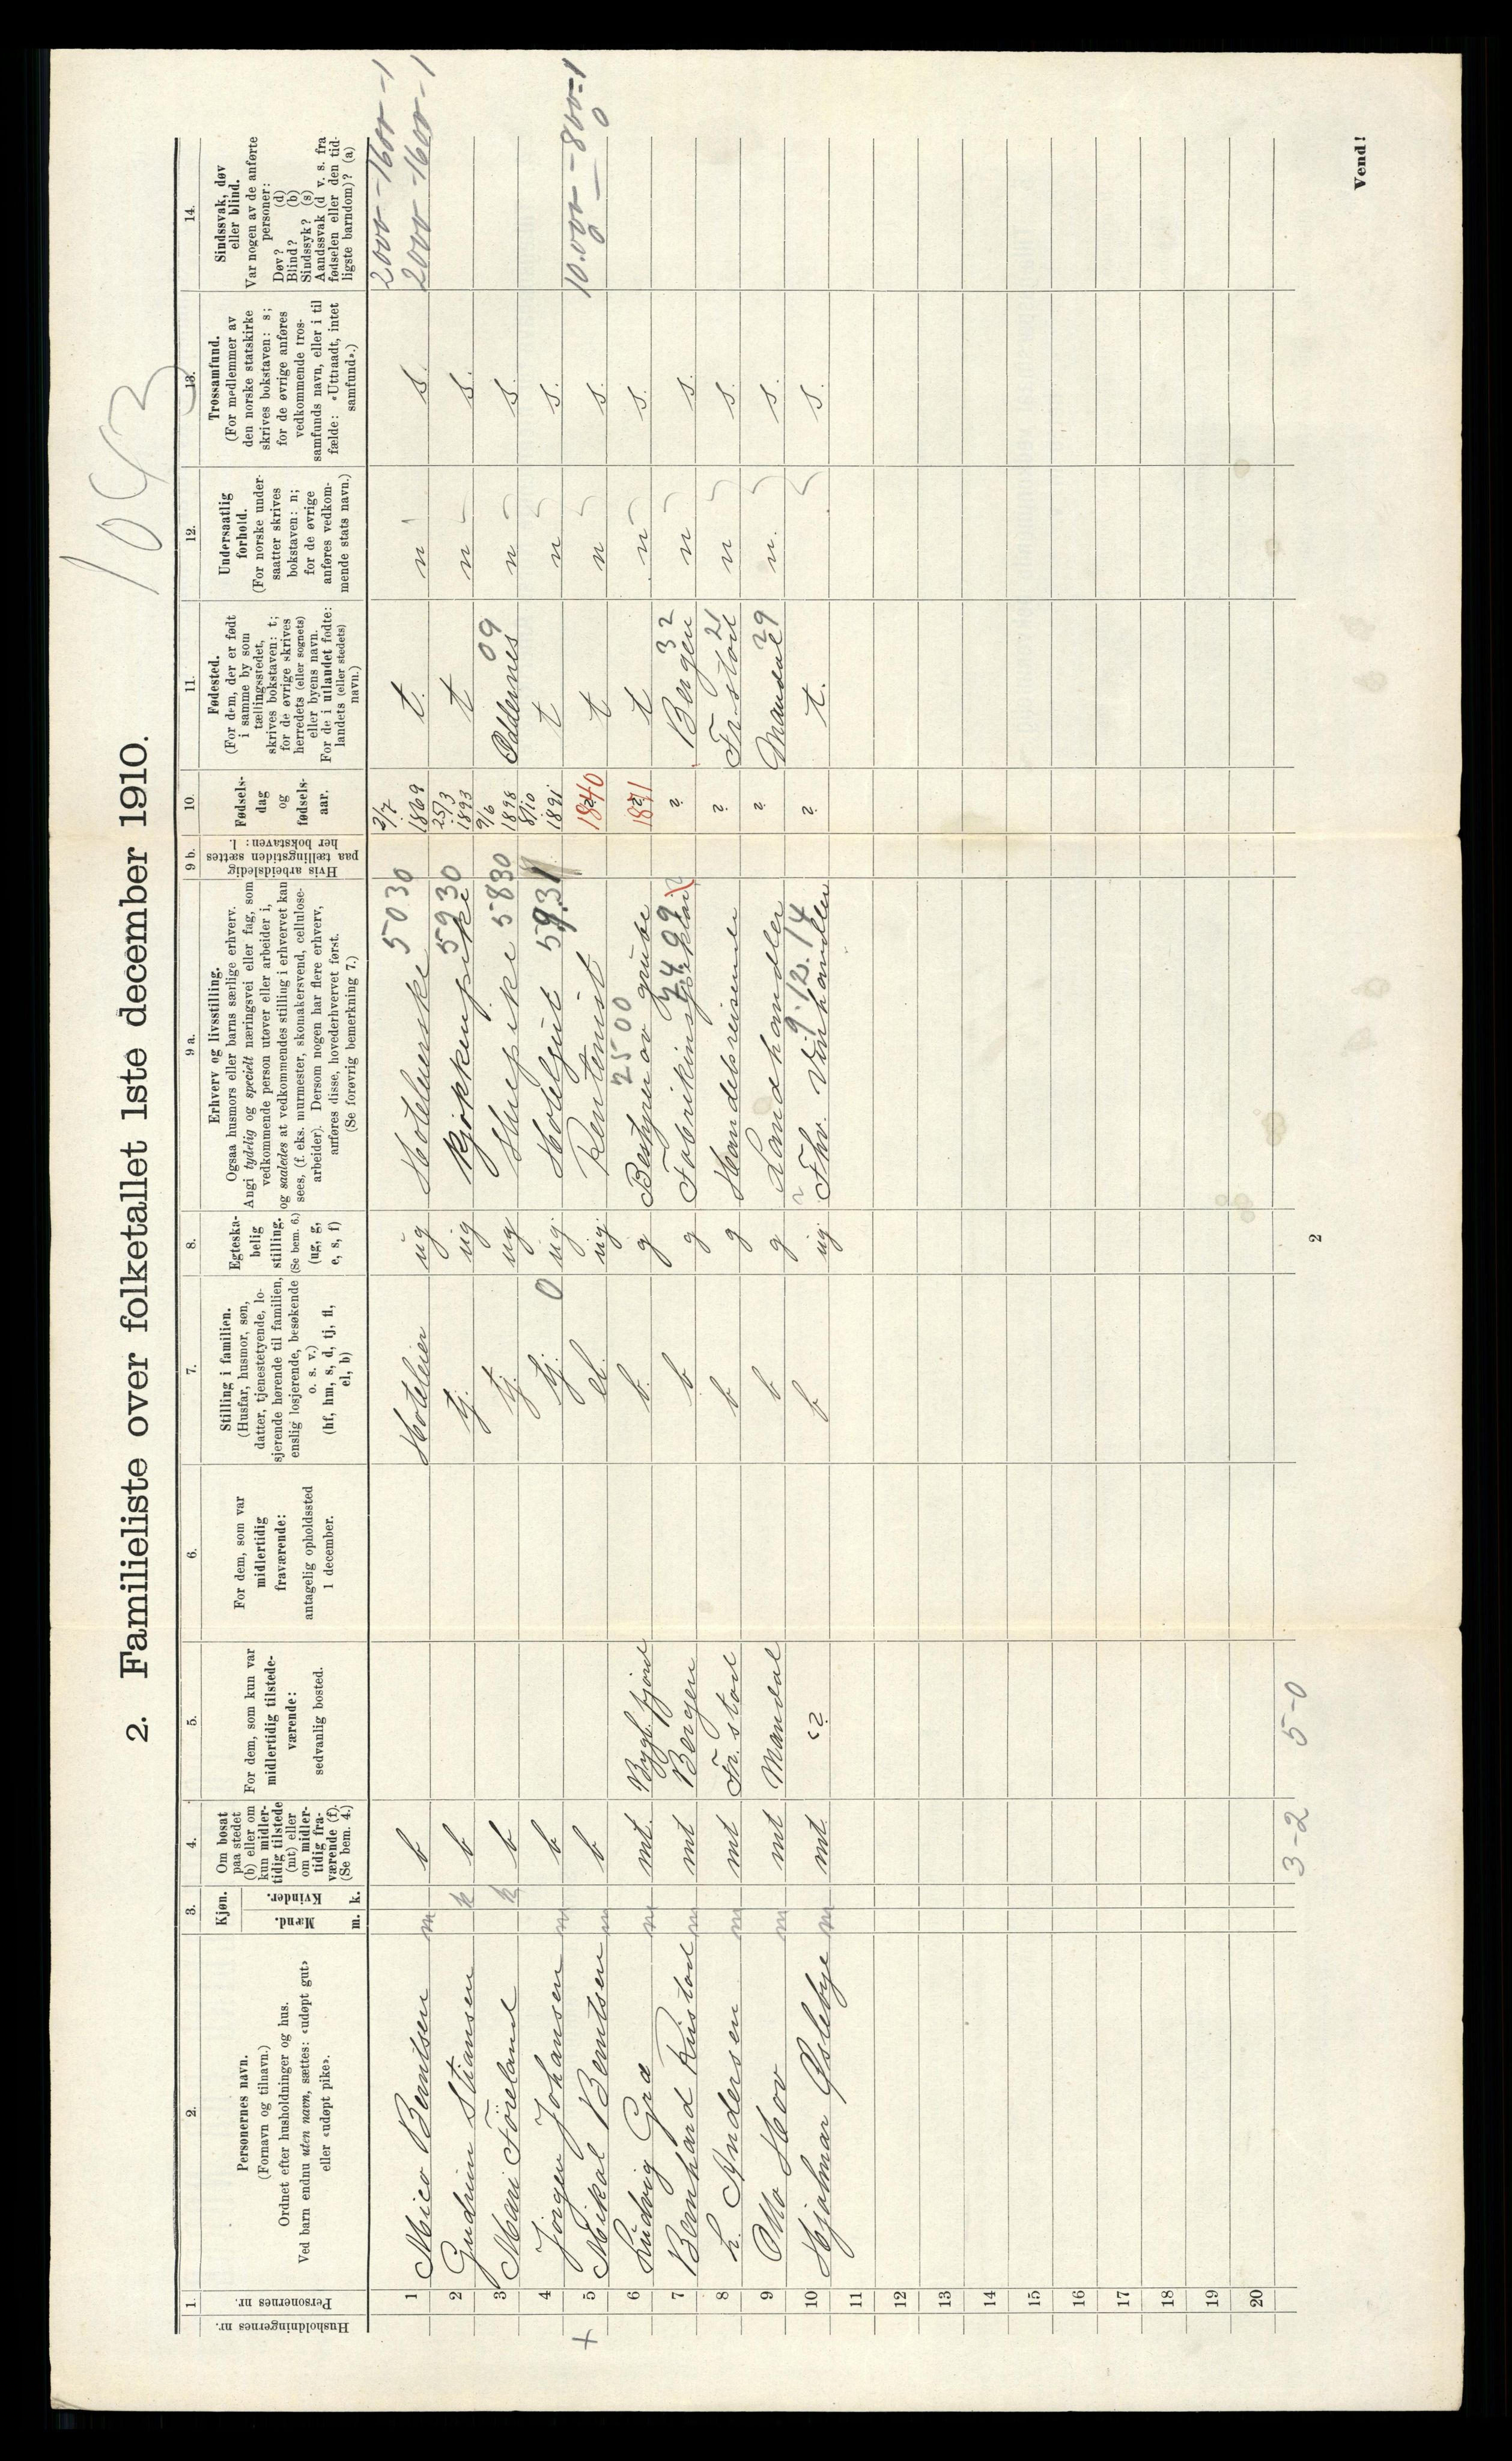 1043
2. Familieliste over folketallet 1ste december 1910.
Husholdningernes nr.
1.
Personernes nr.
2.
Personernes navn.
(Fornavn og tilnavn.)
Ordnet efter husholdninger og hus.
Ved barn endnu uten navn, sættes: «udøpt gut»
eller «udøpt pike».
3.
Kjøn.
Mænd.
Kvinder.
m. k.
4.
Om bosat
paa stedet
(b) eller om
kun midler-
tidig tilstede
(mt) eller
om midler-
tidig fra-
værende (f).
(Se bem. 4.)
5.
For dem, som kun var
midlertidig tilstede-
værende:
sedvanlig bosted.
6.
For dem, som var
midlertidig
fraværende:
antagelig opholdssted
1 december.
7.
Stilling i familien.
(Husfar, husmor, søn,
datter, tjenestetyende, lo-
sjerende hørende til familien,
enslig losjerende, besøkende
o. s. v.)
(hf, hm, s, d, tj, fl,
el, b)
8.
Egteska-
belig
stilling.
(Se bem. 6.)
(ug, g,
e, s, f)
9 a.
Erhverv og livsstilling.
Ogsaa husmors eller barns særlige erhverv.
Angi tydelig og specielt næringsvei eller fag, som
vedkommende person utøver eller arbeider i,
og saaledes at vedkommendes stilling i erhvervet kan
sees, (f. eks. murmester, skomakersvend, cellulose-
arbeider). Dersom nogen har flere erhverv,
anføres disse, hovederhvervet først.
(Se forøvrig bemerkning 7.)
9 b.
Hvis arbeidsledig
paa tællingstiden sættes
her bokstaven: l.
10.
Fødsels-
dag
og
fødsels-
aar.
11.
Fødested.
(For dem, der er født
i samme by som
tællingsstedet,
skrives bokstaven: t;
for de øvrige skrives
herredets (eller sognets)
eller byens navn.
For de i utlandet fødte:
landets (eller stedets)
navn.)
12.
Undersaatlig
forhold.
(For norske under-
saatter skrives
bokstaven: n;
for de øvrige
anføres vedkom-
mende stats navn.)
13.
Trossamfund.
(For medlemmer av
den norske statskirke
skrives bokstaven: s;
for de øvrige anføres
vedkommende tros-
samfunds navn, eller i til
fælde: «Uttraadt, intet
samfund».)
14.
Sindssvak, døv
eller blind.
Var nogen av de anførte
personer:
Døv? (d)
Blind? (b)
Sindssyk? (s)
Aandssvak (d v. s. fra
fødselen eller den tid-
ligste barndom)? (a)
1 Mico Berntsen m b Hoteleier ug Hotelverske 5030 2/7 1869 t. n s. 2000-1600-1
2000-1600-1
2 Gudrun Stiansen k b tj. ug Kjøkkenpike 5930 25/3 1893 t n s.
3 Mari Föreland k b tj. ug Stuepike 5830 9/6 1898 Oddernes 09 n s.
4 Jörgen Johansen m b tj. 0 ug. Hotelgut 5931 8/10 1891 t n s.
+ 5 Mikal Berntsen m b el. ug. Rentenist 1840 t n s. 10.000-800-1
6 Ludvig Grå m mt. Bygl. fjord b. g Bestyrer av grube 2500 1871 t n s.
7 Bernhard Rustad m mt Bergen b g 7499 ? Bergen 32 n s.
8 L. Andersen m mt Fr. stad b g Handelsreisende ? Fr. stad 21 n s.
9 Otto Hov m mt Mandal b g Landhandler ? Mandal 29 n. s.
10 Hjalmar Østebye m mt. ? b ug. Fhv. Vinhandler 9.12.14 ? t. s.
11
12
13
14
15
16
17
18
19
20
3-2 5-0
2
Vend!